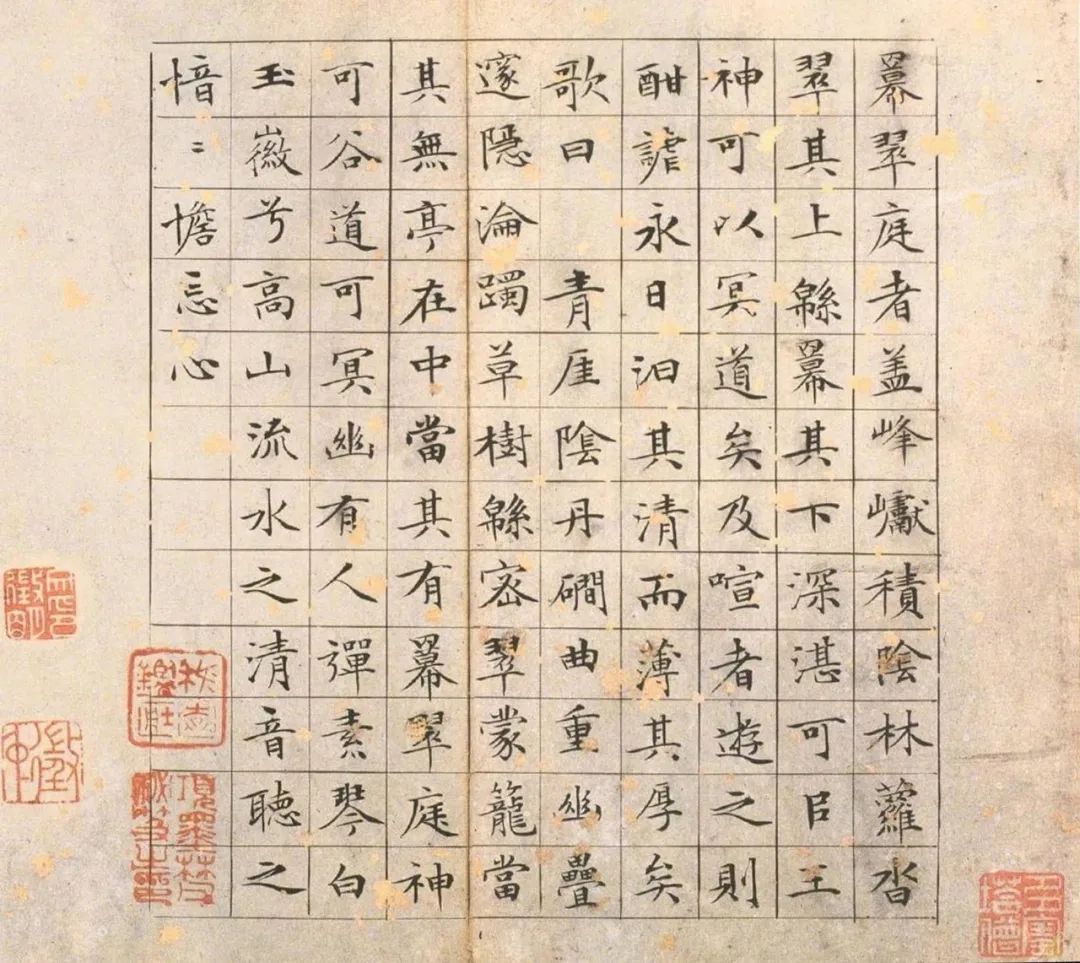 羃翠庭者盖峰巘積陰林蘿沓
翠其上緜羃其下深湛可㠯王
神可以冥道矣及喧者遊之則
酣謔永日汩其清而薄其厚矣
歌曰 青厓陰丹磵曲重幽疊
邃隱淪躅草樹緜密翠蒙籠當
其無亭在中當其有羃翠庭神
可谷道可冥幽有人彈素琴白
玉徽兮高山流水之清音聽之
愔〻憺忘心